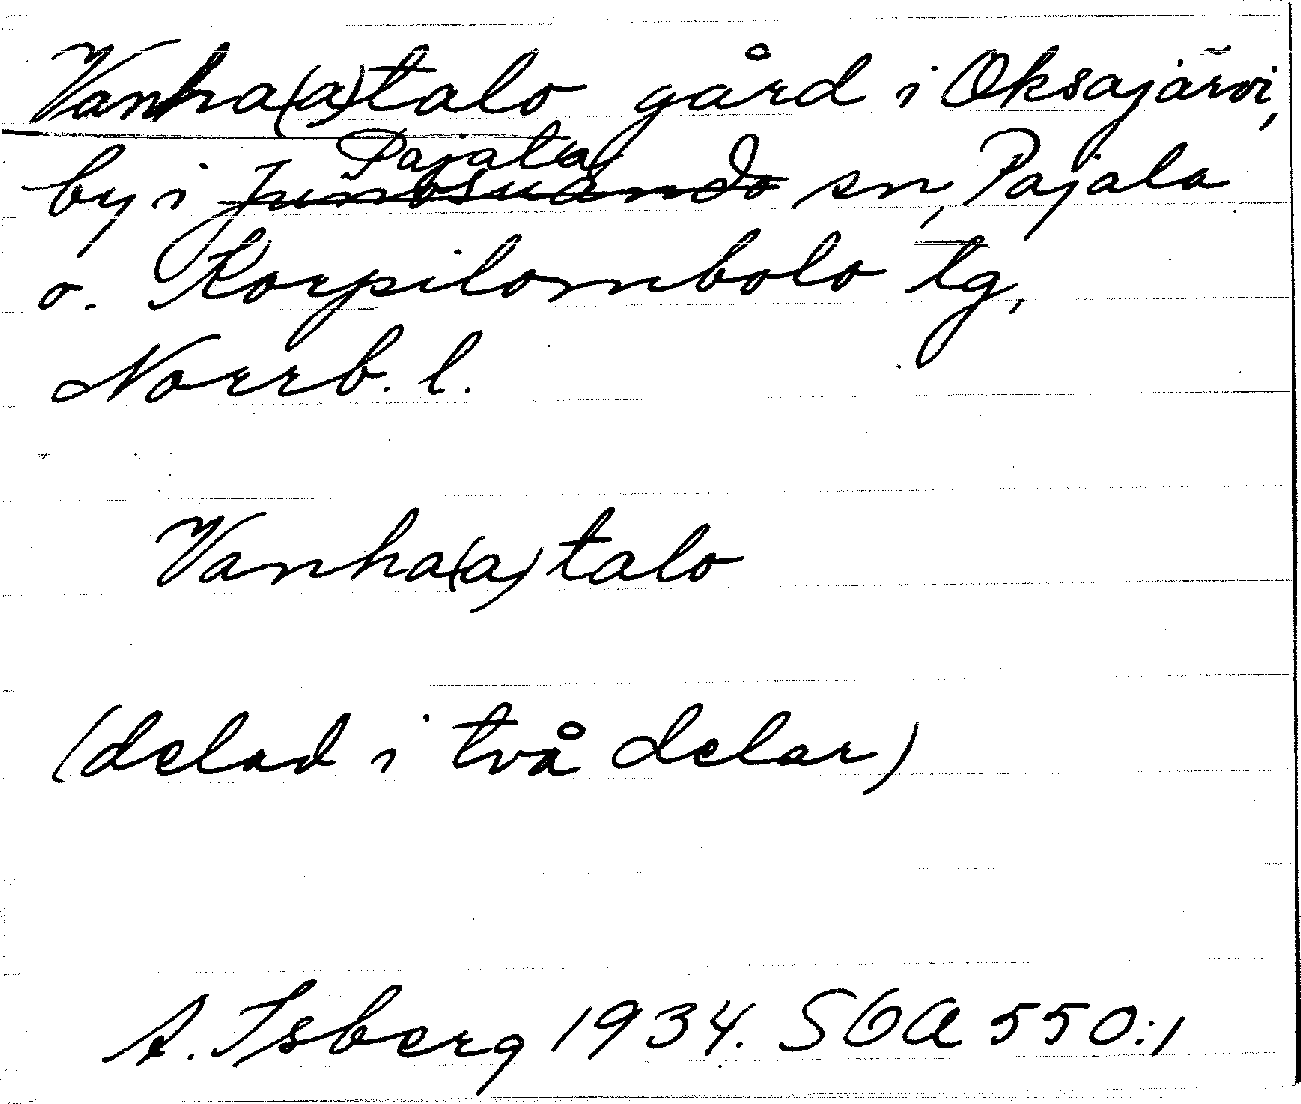 Vanha(a)talo gård i Oksajärvi,
Pajala
by i Junosuando sn, Pajala
o. Korpilombolo tg,
Norrb. l.
Vanha(a)talo
(delad i två delar)
A. Isberg 1934. SOA 550:1